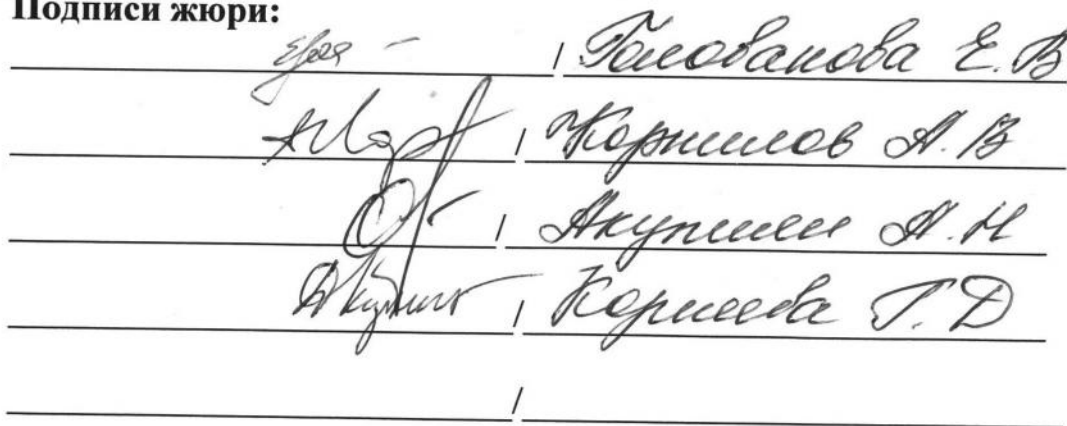 Подписи жюри:
/ Голованова Е. В
/ Корнилов А. В
/ Акупиян А. Н
/ Корнеева Т. Д
/